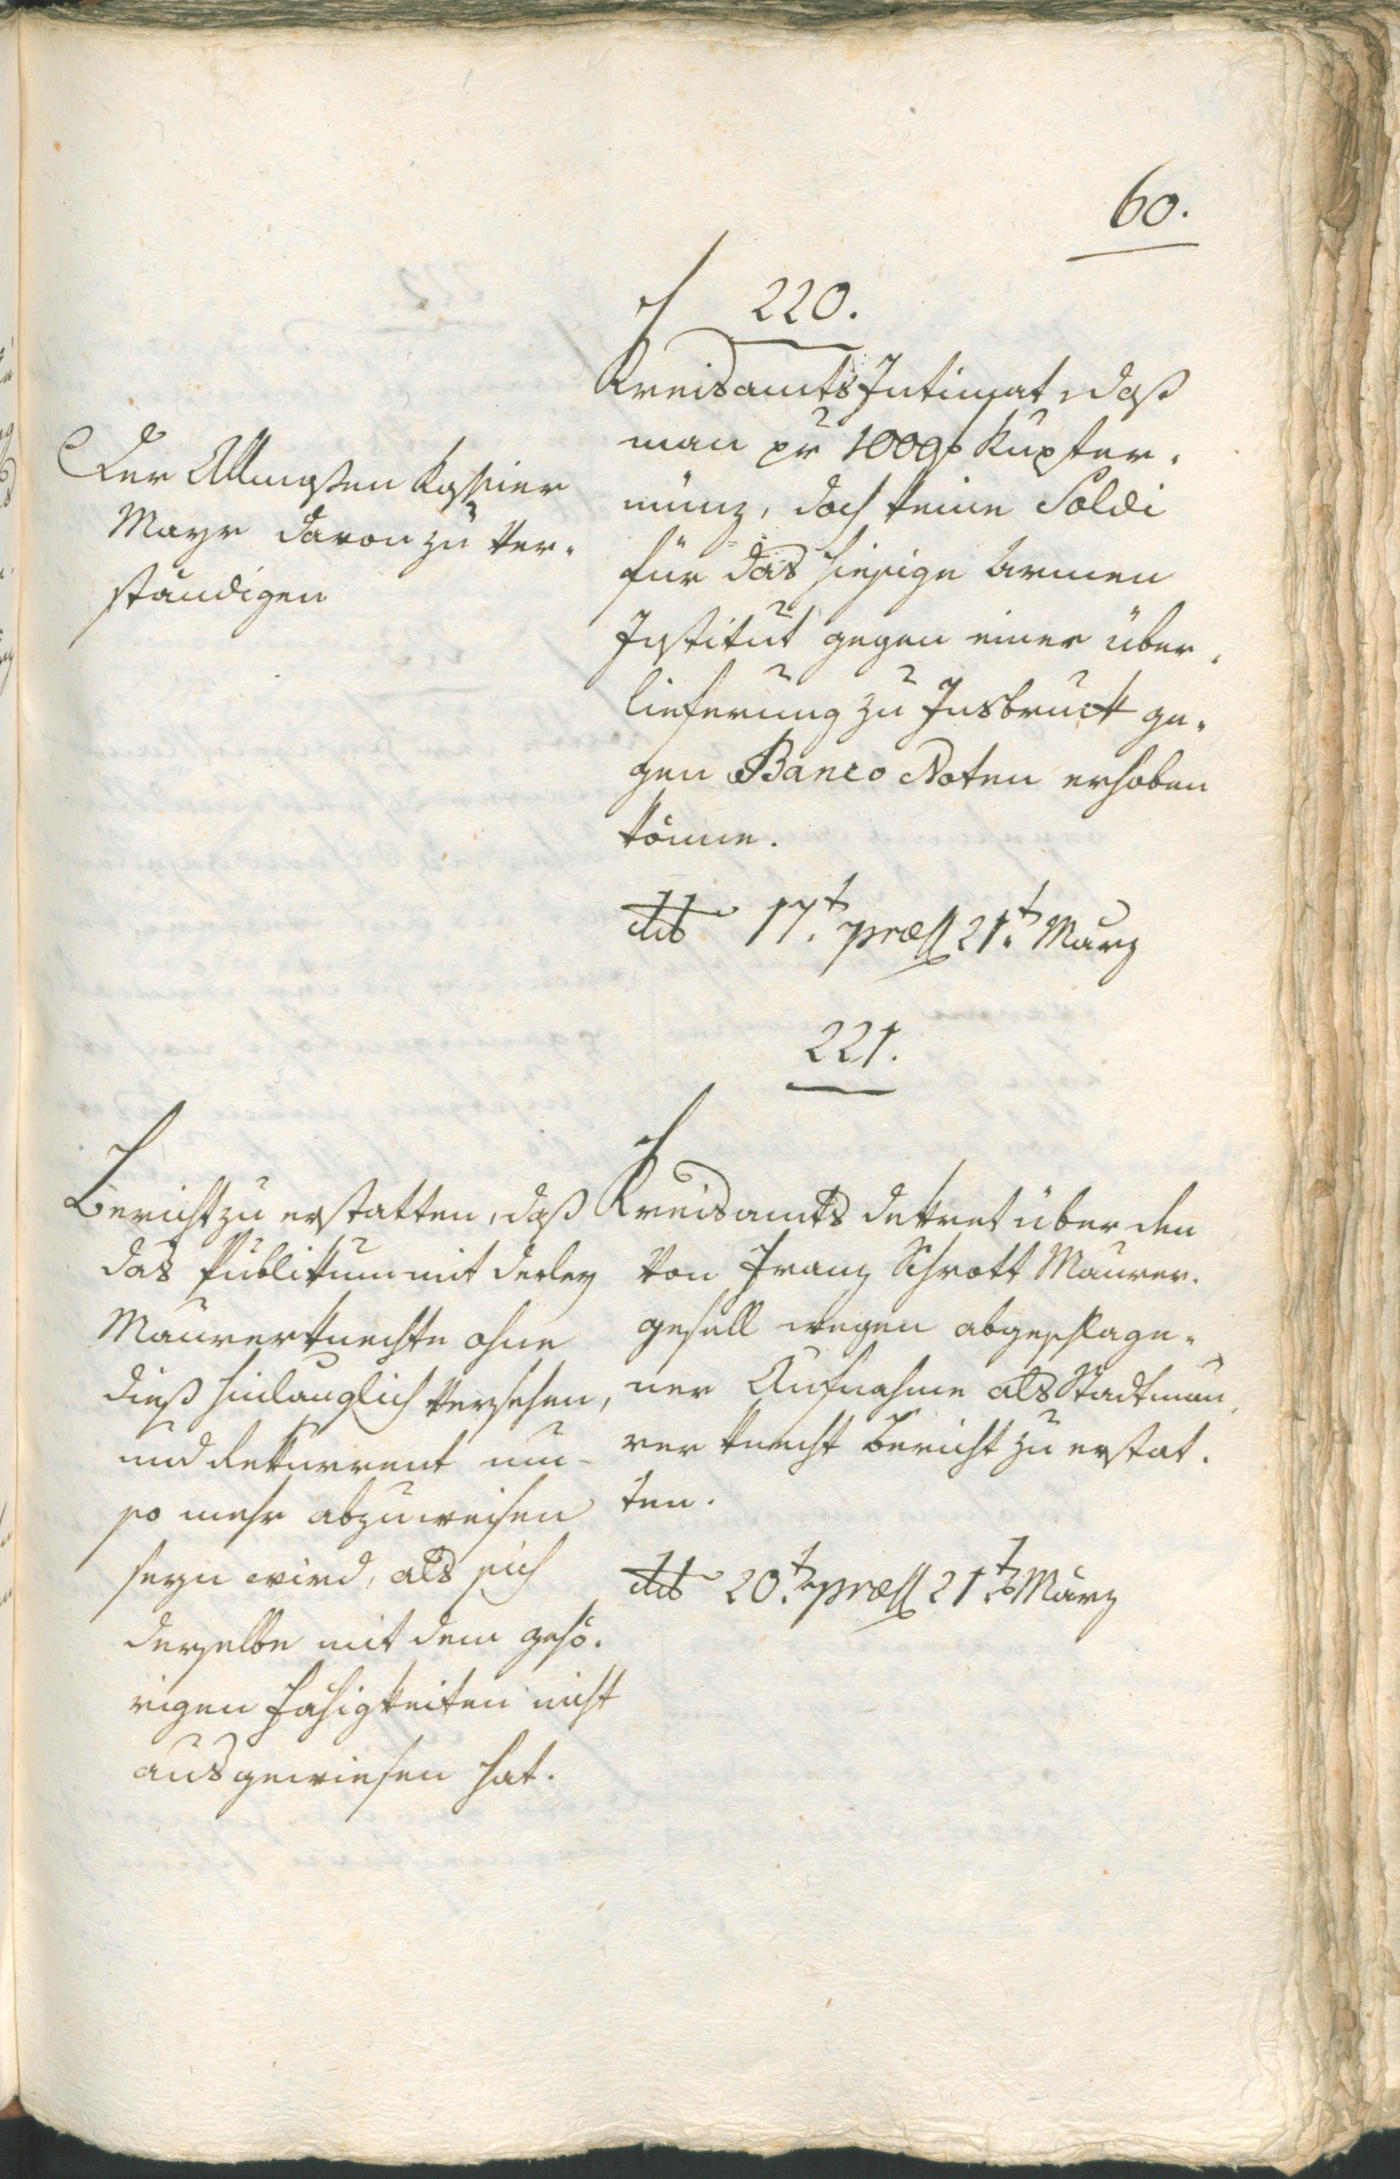 60.
220.
Kreisamts Intimat, daß
man pr 1000 f Kupfer-
münz, doch keine Soldi
für das hiesige Armen
Institut gegen einer über-
lieferung zu Insbruck ge-
gen Banco Noten erhoben
könne.
dtto 17.t præs 21.t März
Der Allmosen Kassier
Mayr davon zu ver-
ständigen
221.
Kreisamts dekret über den
von Franz Schrott Maurer-
gesell wegen abgeschlage-
ner Aufnahme als Stadtmau-
rer knecht Bericht zu erstat-
ten.
dtto 20.t præs 21.t März
Bericht zu erstatten, daß
das Publikum mit derley
Maurerknechte ohne
dieß hinlanglich versehen,
und rekurrent um-
so mehr abzuweisen
seyn wird, als sich
derselbe mit dem gehö-
rigen Fähigkeiten nicht
ausgewiesen hat.